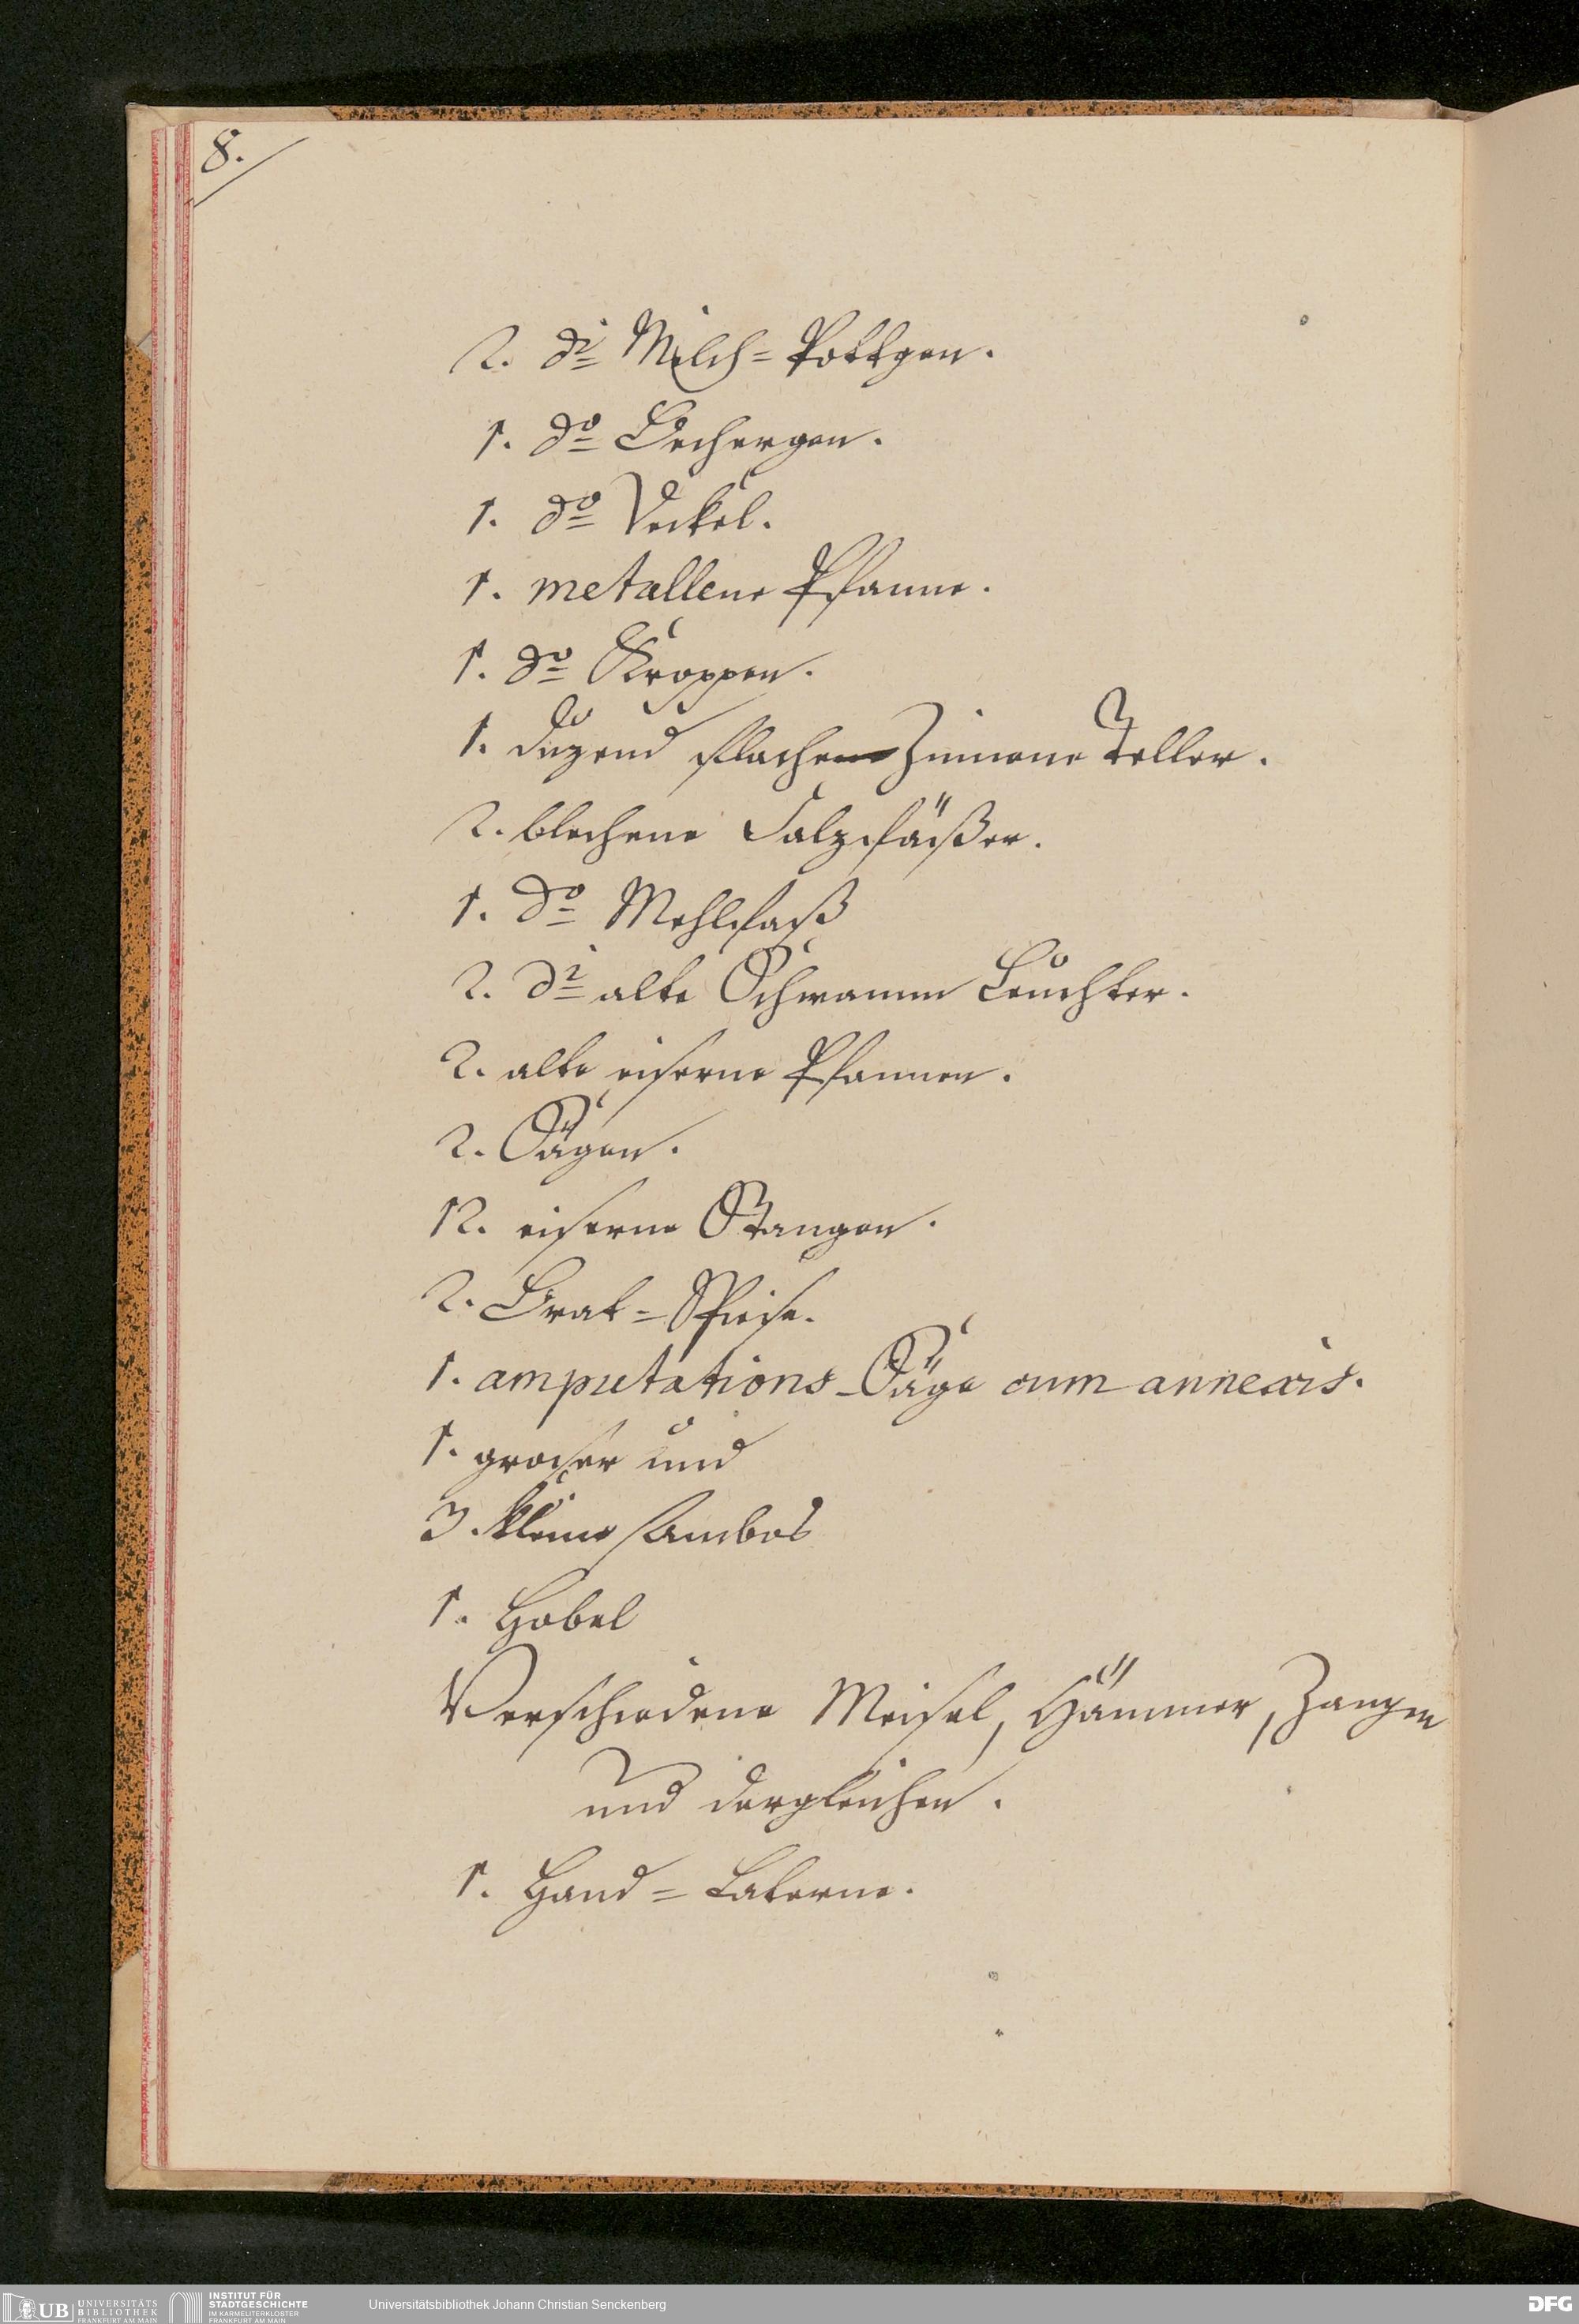 8.
2. di Milch=Pottgen.
1. do Bechergen.
1. do Deckel.
1. metallene Pfanne.
1. do Kroppen.
1. Duzend flache Zinnene Teller.
2. blechene Salzfäßer.
1. do Mehlfaß
2. di alte Schwamm Leuchter.
2. alte eiserne Pfannen.
2. Sägen.
12. eiserne Stangen.
2. Brat=Spiese.
1. amputations-Säge cum annexis.
1. groser und
3. kleine Ambos
1. Hobel
Verschiedene Meisel, Hämmer, Zangen
und dergleichen.
1. Hand=Laterne.
UB UNIVERSITÄTS
BIBLIOTHEK
FRANKFURT AM MAIN
INSTITUT FÜR
STADTGESCHICHTE
IM KARMELITERKLOSTER
FRANKFURT AM MAIN
Universitätsbibliothek Johann Christian Senckenberg
DFG